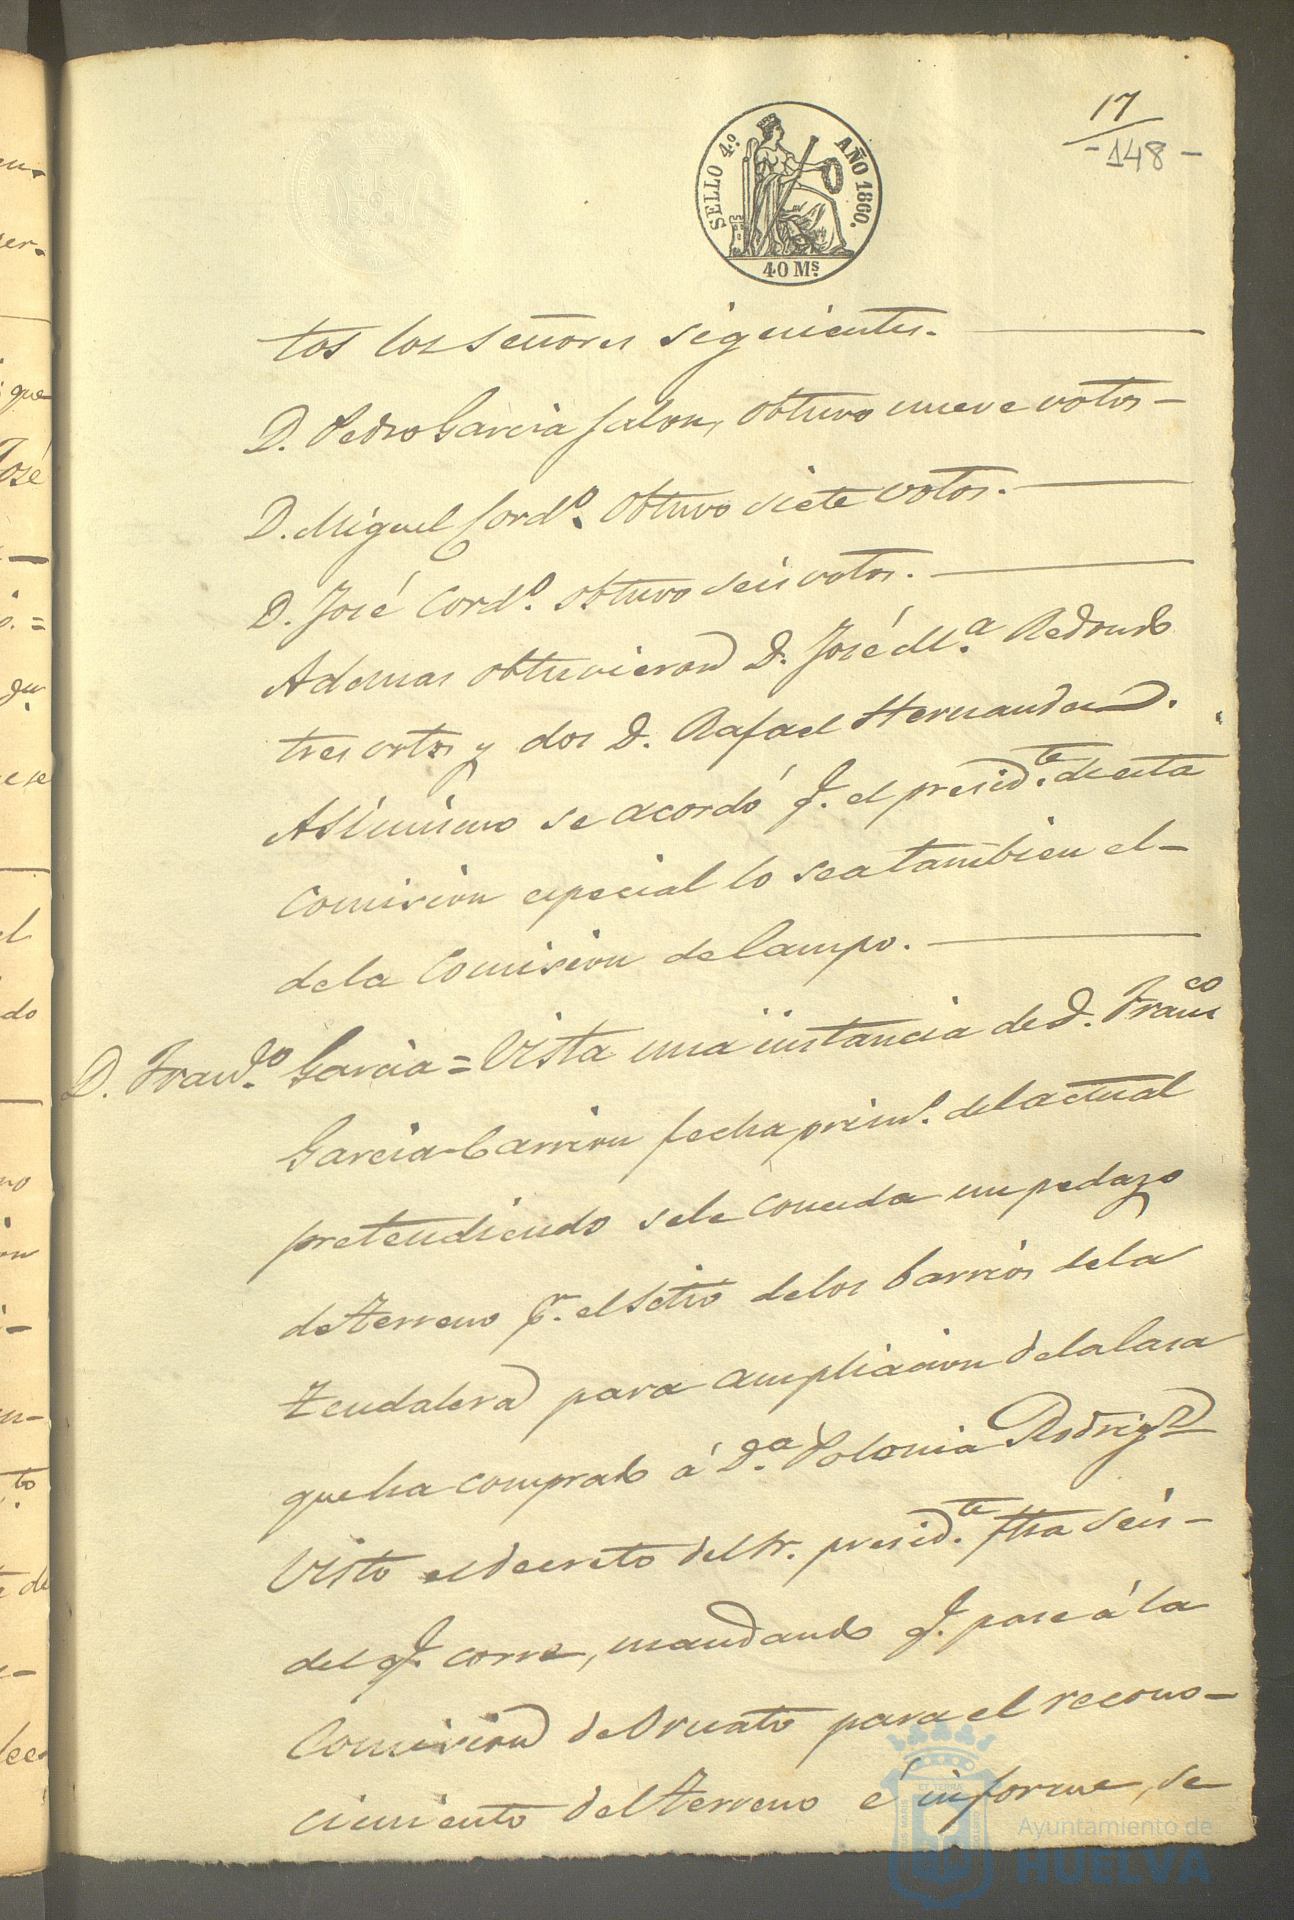 17
-148-
SELLO 4.º AÑO 1860.
40 Ms.
tos los señores siguientes.
D. Pedro Garcia Jalon, obtuvo nueve votos-
D. Miguel Cord.º obtuvo siete votos.
D. José Cord.º obtuvo seis votos.
Ademas obtuvieron D. José M.ª Redondo
tres votos y dos D. Rafael Hernandez.
Asimismo se acordó q. el presid.te de esta
comision especial lo sea tambien el-
de la Comision de Campo.
D. Fran.co Garcia = Vista una instancia de D. Franco
Garcia Carrion fecha prim.º del actual
pretendiendo se le conceda un pedazo
de terreno pr. el sitio de los barrios de la
para ampliacion de la Casa
que ha comprado á D.ª Polonia Rodrigz
Visto el decreto del Sr. presid.te fha seis-
del q. corre, mandando q. pase á la
Comision de Ornato para el recono-
cimiento del terreno é informe, se
Ayuntamiento de
HUELVA
que
José
do